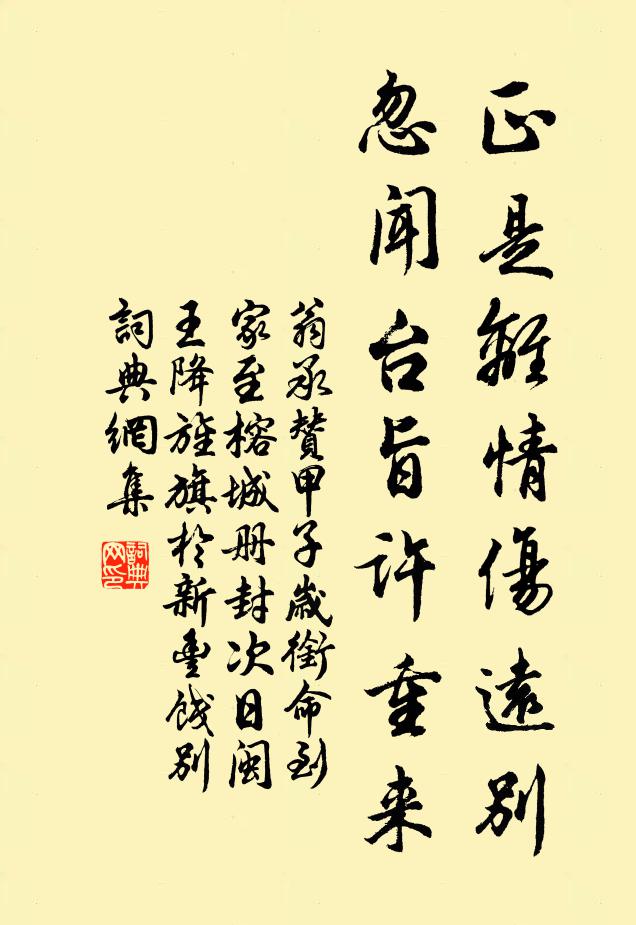 正是離情傷遠別
忽聞台旨許重来
翁承贊甲子歲銜命到
家至榕城册封次日閩
王降旌旗於新豐餞別
詞典網集
詞典
网印